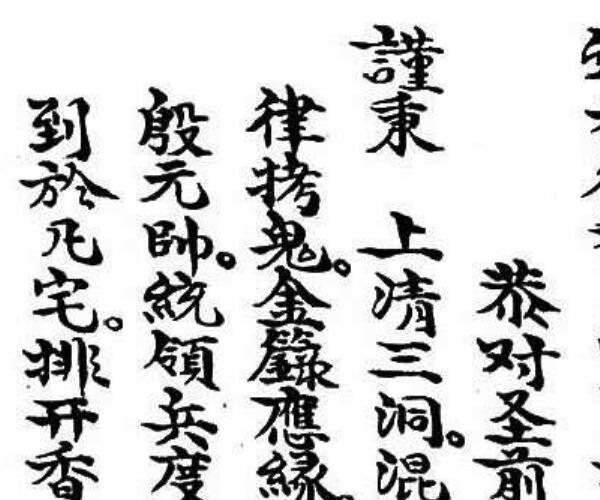 恭对圣前
謹秉 上清三洞。混
律拷鬼。金籙應緣。
殷元帥。統領兵度
到於凡宅。排开香